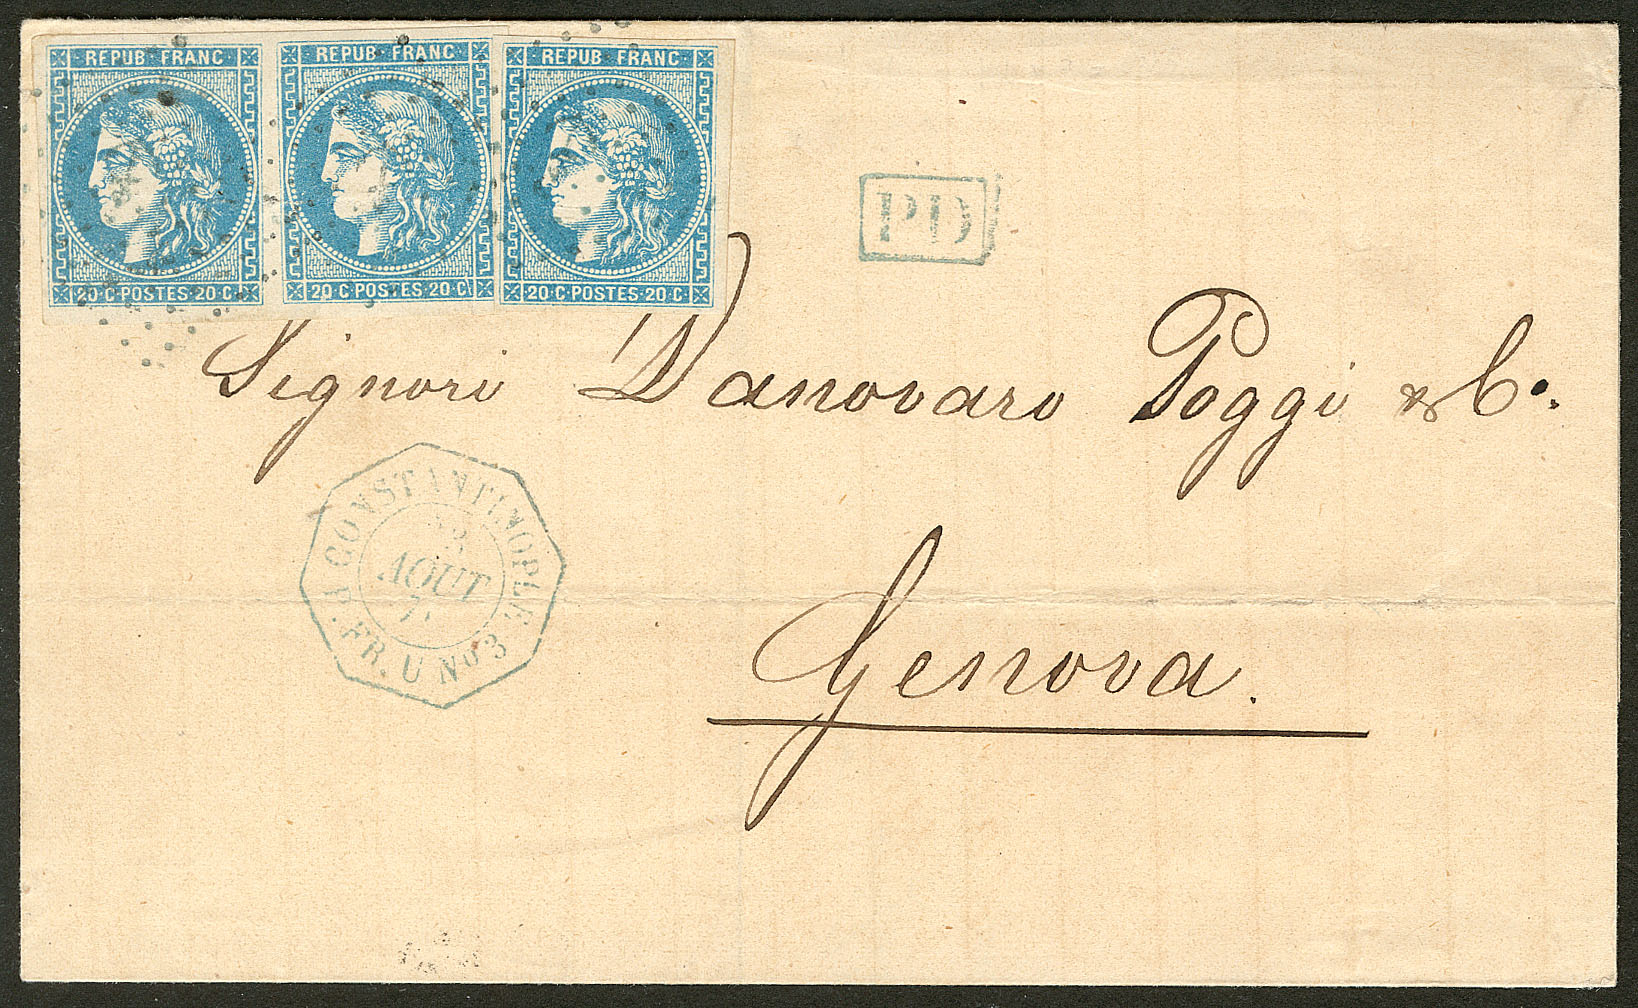 REPUB·FRANC REPUB·FRANC REPUB·FRANC
20·C·POSTES·20·C 20·C·POSTES·20·C 20·C·POSTES·20·C
PD
Signori Danovaro Poggi & Co.
CONSTANTINOPLE
AOUT
P.FR.U No3
Genova.